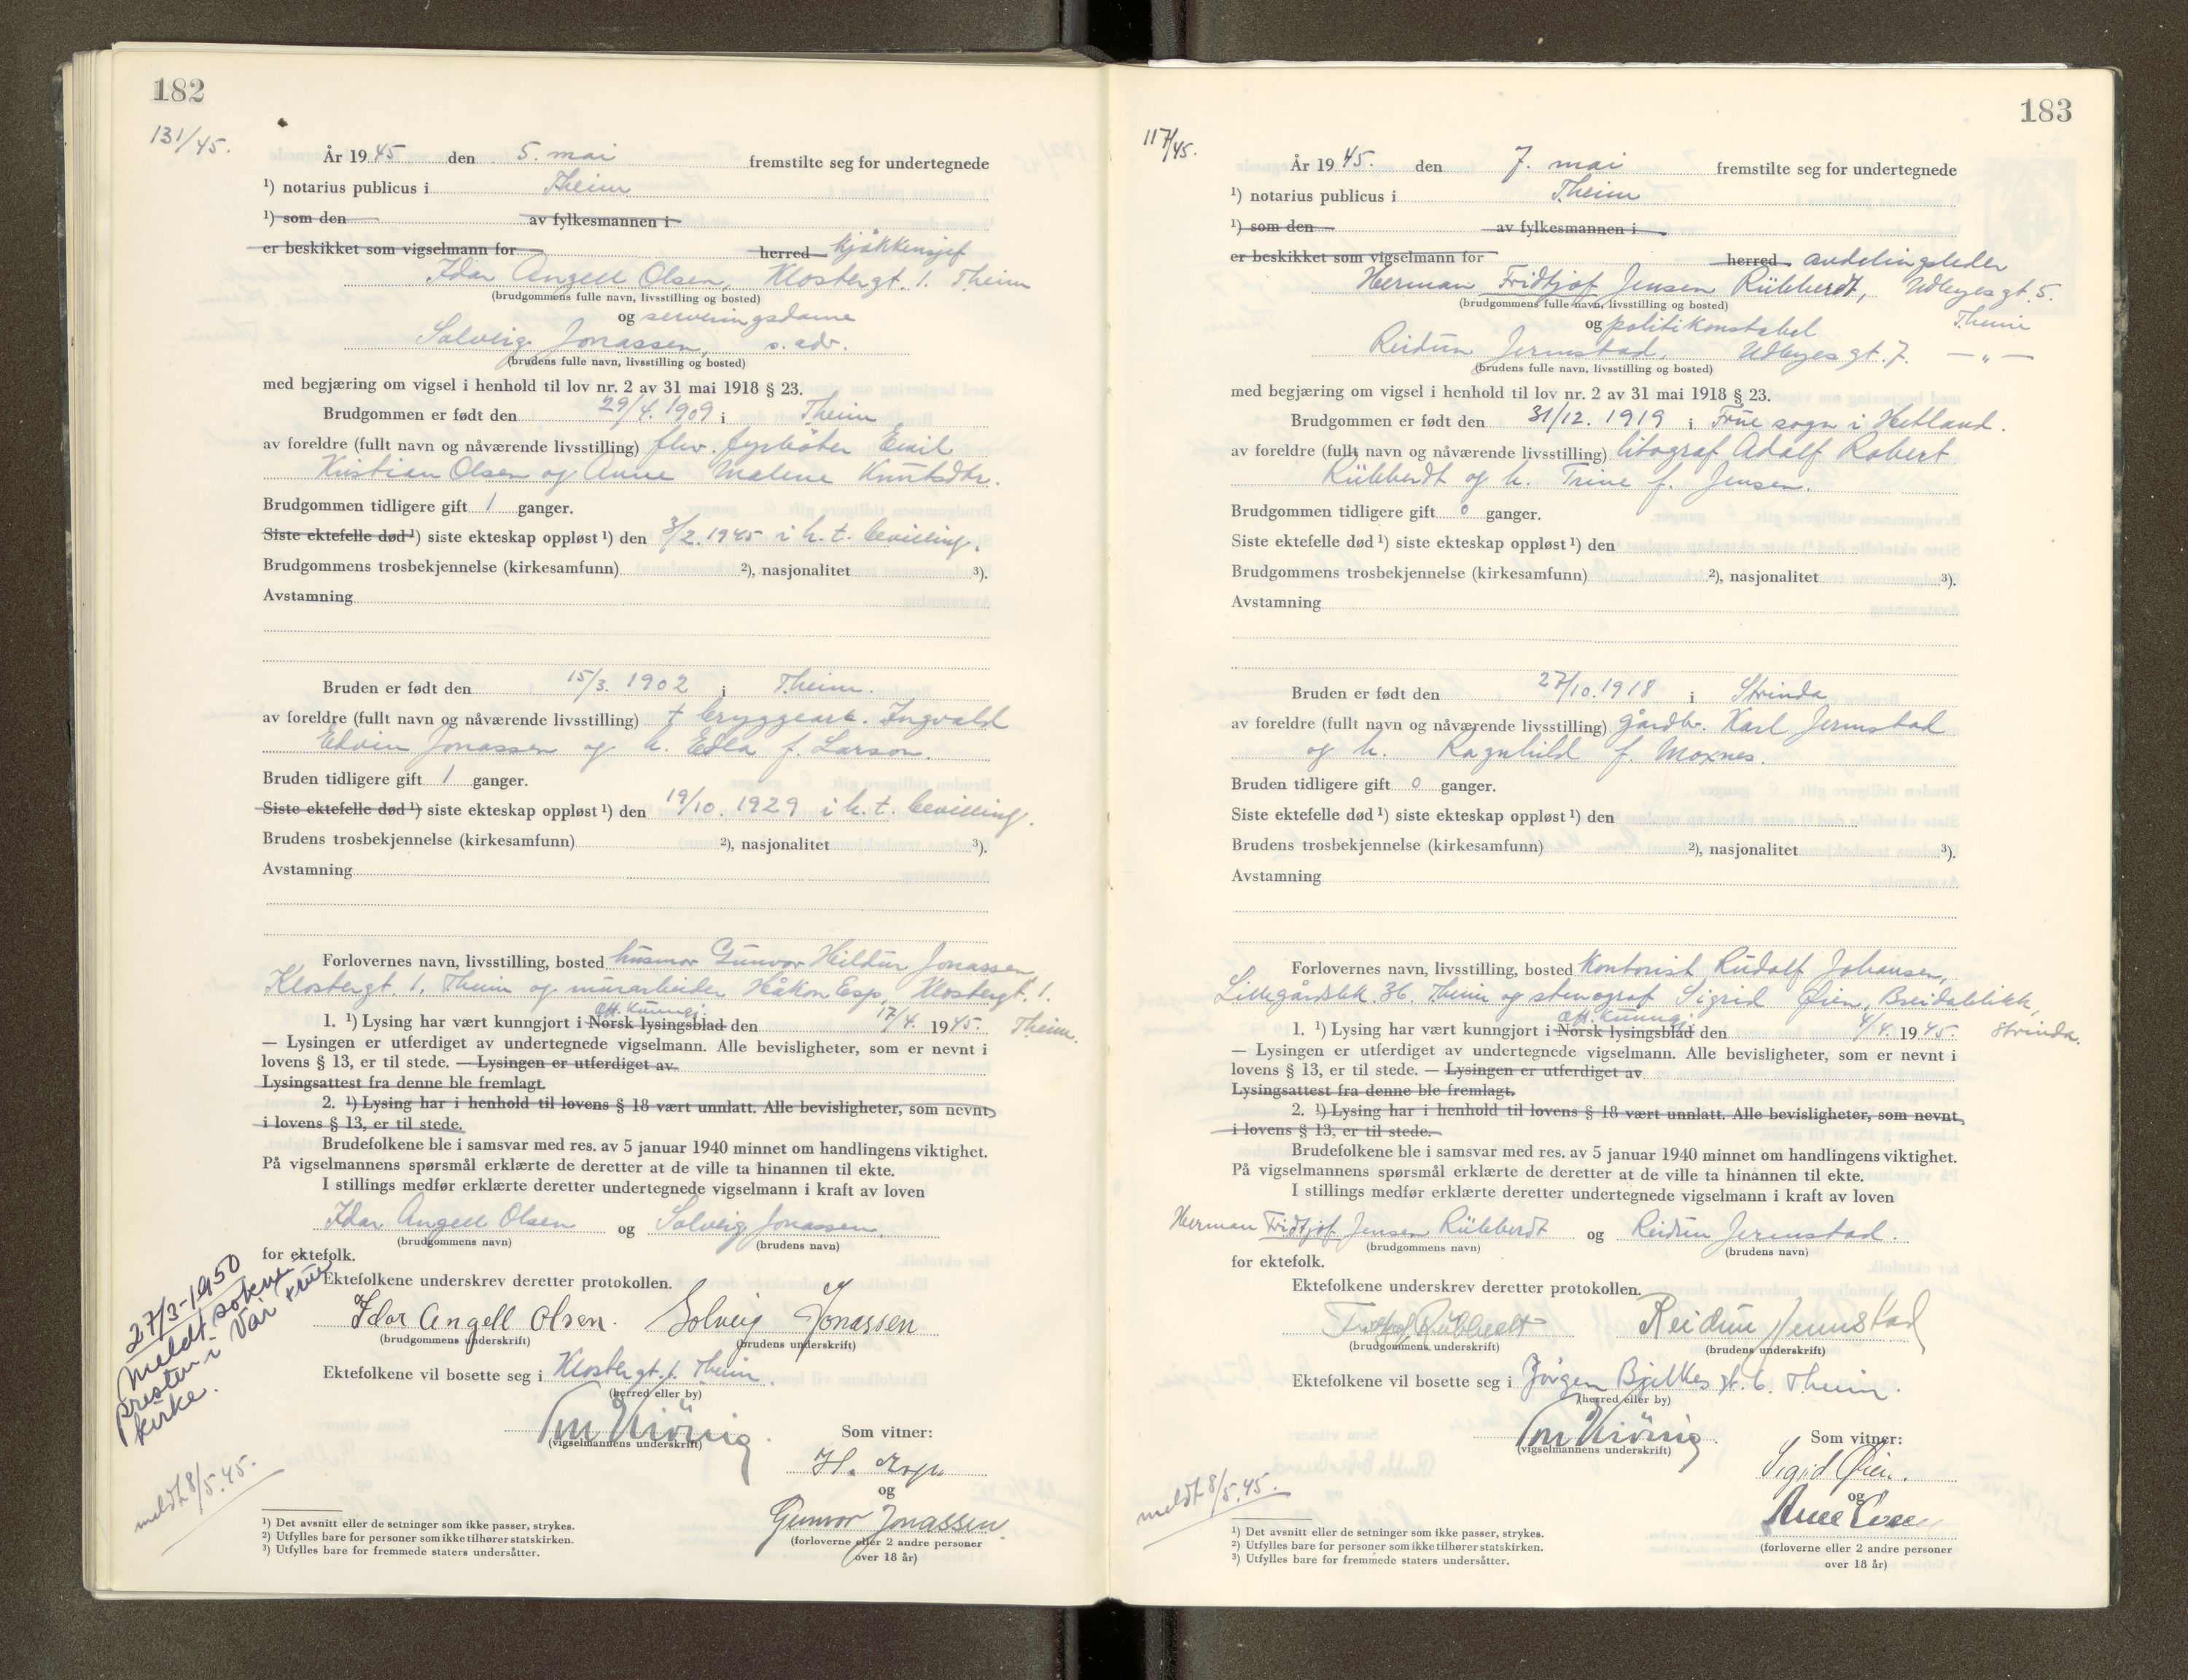 182
131/45.
År 1945 den 5. mai fremstilte seg for undertegnede
¹) notarius publicus i Theim
¹) som den av fylkesmannen i
er beskikket som vigselmann for herred kjøkkensjef
Idar Angell Olsen, Klostergt. 1. Theim
(brudgommens fulle navn, livsstilling og bosted)
og serveringsdame
Solveig Jonassen, s. adr.
(brudens fulle navn, livsstilling og bosted)
med begjæring om vigsel i henhold til lov nr. 2 av 31 mai 1918 § 23.
Brudgommen er født den 29/4. 1909 i Theim
av foreldre (fullt navn og nåværende livsstilling) fhv. fyrbøter Emil
Kristian Olsen og Anne Malene Knutsdtr.
Brudgommen tidligere gift 1 ganger.
Siste ektefelle død ¹) siste ekteskap oppløst ¹) den 3/2. 1945 i h. t. bevilling.
Brudgommens trosbekjennelse (kirkesamfunn) ²), nasjonalitet ³).
Avstamning
Bruden er født den 15/3. 1902 i Theim.
av foreldre (fullt navn og nåværende livsstilling) † bryggearb. Ingvald
Edvin Jonassen og h. Edla f. Larson.
Bruden tidligere gift 1 ganger.
Siste ektefelle død ¹) siste ekteskap oppløst ¹) den 19/10. 1929 i h. t. bevilling.
Brudens trosbekjennelse (kirkesamfunn) ²), nasjonalitet ³).
Avstamning
Forlovernes navn, livsstilling, bosted husmor Gunvor Hildur Jonassen
Klostergt. 1. Theim og murarbeider Håkon Esp, Klostergt. 1.
Off. kunngj.
1. ¹) Lysing har vært kunngjort i Norsk lysingsblad den 17/4. 1945. Theim.
— Lysingen er utferdiget av undertegnede vigselmann. Alle bevisligheter, som er nevnt i
lovens § 13, er til stede. — Lysingen er utferdiget av
Lysingsattest fra denne ble fremlagt.
2. ¹) Lysing har i henhold til lovens § 18 vært unnlatt. Alle bevisligheter, som nevnt
i lovens § 13, er til stede.
Brudefolkene ble i samsvar med res. av 5 januar 1940 minnet om handlingens viktighet.
På vigselmannens spørsmål erklærte de deretter at de ville ta hinannen til ekte.
I stillings medfør erklærte deretter undertegnede vigselmann i kraft av loven
Idar Angell Olsen og Solveig Jonassen.
(brudgommens navn) (brudens navn)
for ektefolk.
Ektefolkene underskrev deretter protokollen.
Idar Angell Olsen. Solveig Jonassen
(brudgommens underskrift) (brudens underskrift)
Ektefolkene vil bosette seg i Klostergt. 1. Theim.
(herred eller by)
(vigselmannens underskrift)
Som vitner:
H. Esp.
og
Gunvor Jonassen.
(forloverne eller 2 andre personer
over 18 år)
27/3-1950
Meldt sokne-
presten i Vår Frue
kirke.
meldt 8/5. 45.
¹) Det avsnitt eller de setninger som ikke passer, strykes.
²) Utfylles bare for personer som ikke tilhører statskirken.
³) Utfylles bare for fremmede staters undersåtter.
183
117/45.
År 1945. den 7. mai fremstilte seg for undertegnede
¹) notarius publicus i Theim
¹) som den av fylkesmannen i
er beskikket som vigselmann for herred avdelingsleder
Herman Fridtjof Jensen Rübberdt, Udbyesgt. 5.
(brudgommens fulle navn, livsstilling og bosted)
og politikonstabel Theim
Reidun Jermstad. Udbyesgt. 7. — " —
(brudens fulle navn, livsstilling og bosted)
med begjæring om vigsel i henhold til lov nr. 2 av 31 mai 1918 § 23.
Brudgommen er født den 31/12. 1919 i Frue sogn i Hetland.
av foreldre (fullt navn og nåværende livsstilling) litograf Adolf Robert
Rübberdt og h. Trine f. Jensen.
Brudgommen tidligere gift 0 ganger.
Siste ektefelle død ¹) siste ekteskap oppløst ¹) den
Brudgommens trosbekjennelse (kirkesamfunn) ²), nasjonalitet ³).
Avstamning
Bruden er født den 27/10. 1918 i Strinda
av foreldre (fullt navn og nåværende livsstilling) gårdbr. Karl Jermstad
og h. Ragnhild f. Moxnes.
Bruden tidligere gift 0 ganger.
Siste ektefelle død ¹) siste ekteskap oppløst ¹) den
Brudens trosbekjennelse (kirkesamfunn) ²), nasjonalitet ³).
Avstamning
Forlovernes navn, livsstilling, bosted Kontorist Rudolf Johansen,
Lillegårdsbk. 36. Theim og stenograf Sigrid Øien, Breidablikk,
Off. kunngj.
1. ¹) Lysing har vært kunngjort i Norsk lysingsblad den 4/4. 1945. Strinda.
— Lysingen er utferdiget av undertegnede vigselmann. Alle bevisligheter, som er nevnt i
lovens § 13, er til stede. — Lysingen er utferdiget av
Lysingsattest fra denne ble fremlagt.
2. ¹) Lysing har i henhold til lovens § 18 vært unnlatt. Alle bevisligheter, som nevnt
i lovens § 13, er til stede.
Brudefolkene ble i samsvar med res. av 5 januar 1940 minnet om handlingens viktighet.
På vigselmannens spørsmål erklærte de deretter at de ville ta hinannen til ekte.
I stillings medfør erklærte deretter undertegnede vigselmann i kraft av loven
Herman Fridtjof Jensen Rübberdt og Reidun Jermstad.
(brudgommens navn) (brudens navn)
for ektefolk.
Ektefolkene underskrev deretter protokollen.
Fridtjof Rübberdt Reidun Jermstad
(brudgommens underskrift) (brudens underskrift)
Ektefolkene vil bosette seg i Jörgen Bjelkes gt. 6. Theim.
(herred eller by)
(vigselmannens underskrift)
Som vitner:
Sigrid Øien.
og
(forloverne eller 2 andre personer
over 18 år)
meldt 8/5. 45.
¹) Det avsnitt eller de setninger som ikke passer, strykes.
²) Utfylles bare for personer som ikke tilhører statskirken.
³) Utfylles bare for fremmede staters undersåtter.